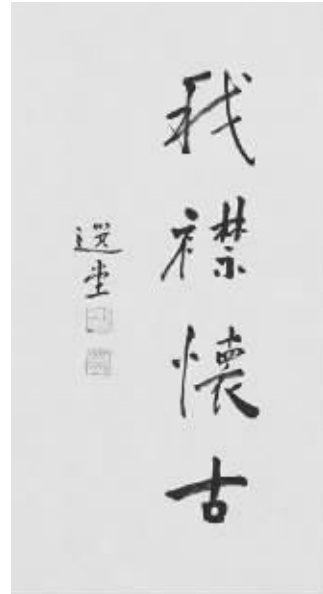 我襟懷古
選堂